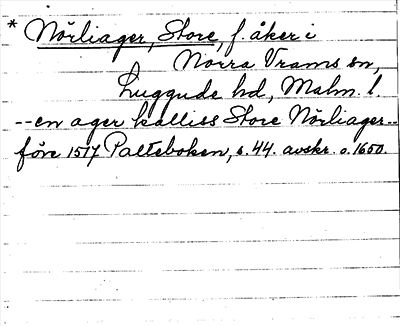 * Nörliager, Store, f. åker i
Norra Vrams sn,
Luggude hd, Malm. l.
-- en ager kalliss Store Nörliager --
före 1517 Palteboken, s. 44. avskr. o. 1600.